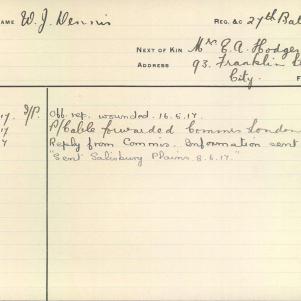 NAME W. J. Dennis REG. &c 27th Bat
NEXT OF KIN Mrs E. A. Hodge
ADDRESS 93. Franklin
City. F
17. I/P. Off. rep. wounded. 16.5.17.
17 P/Cable forwarded Commis. London
7 Reply from Commis. Information sent
"Sent Salisbury Plains 8.6.17."